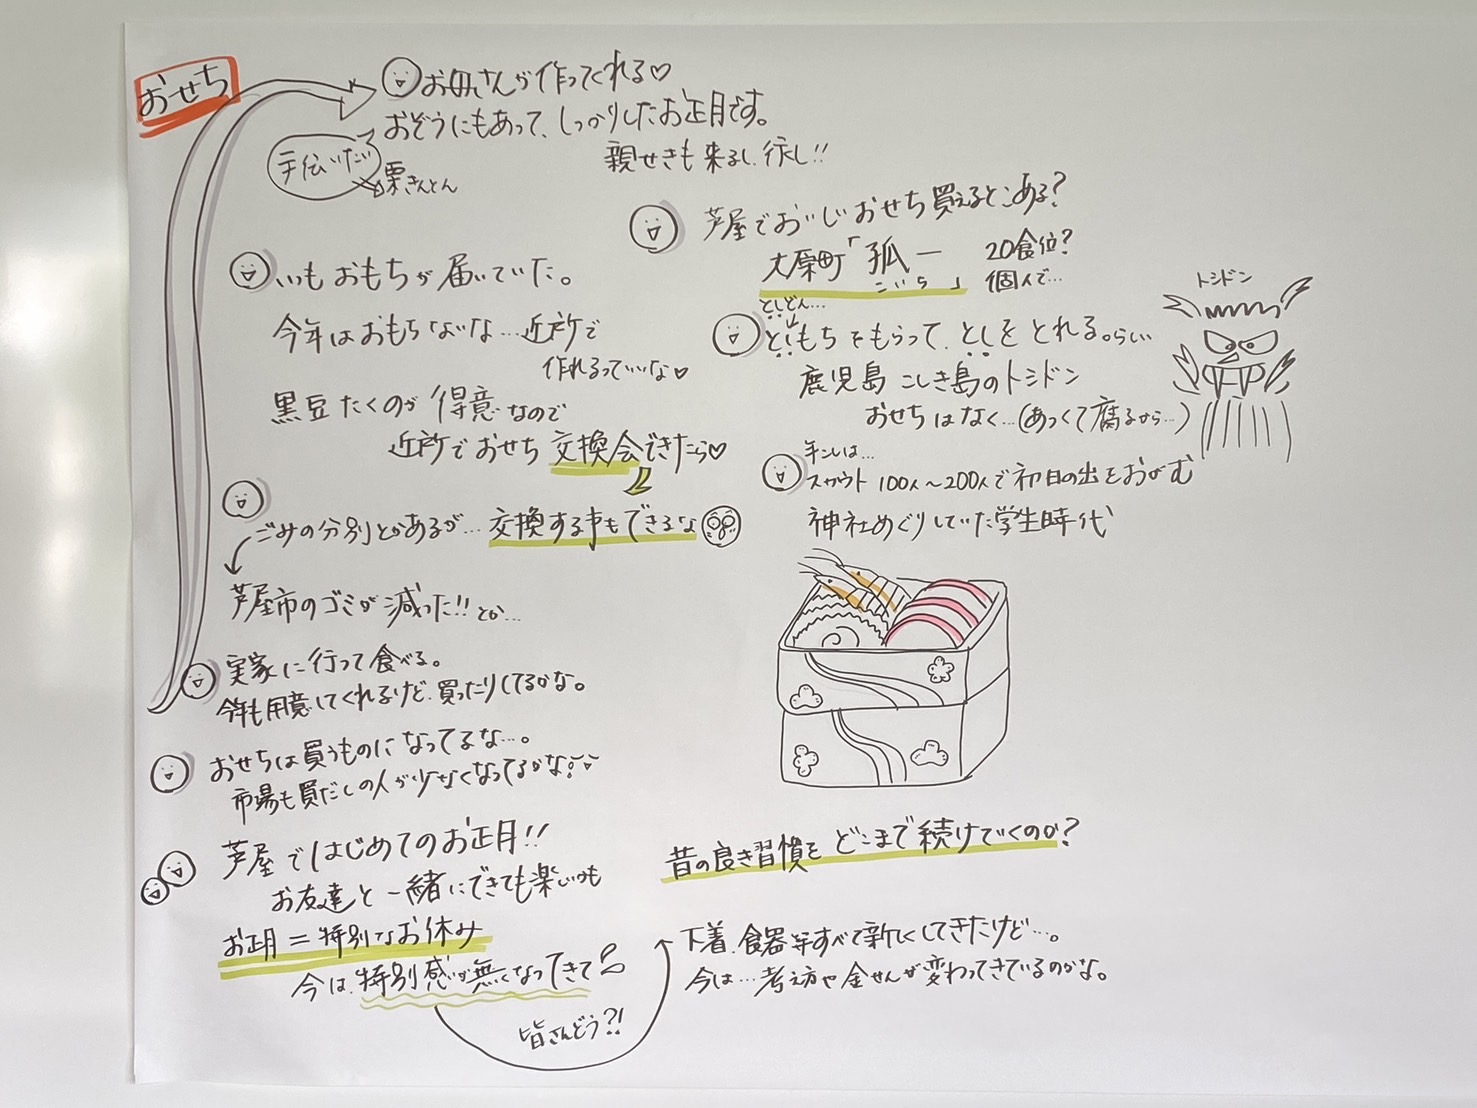 おせち
お母さんが作ってくれる♡
おぞうにもあって、しっかりしたお正月です。
親せきも来るし、行くし!!
手伝いたい
栗きんとん
芦屋でおいしいおせち買えるとこある?
大原町「孤一」
こいち
20食位?
個人で…
いつもおもちが届いていた。
今年はおもちないな…近所で
作れるっていいな♡
黒豆たくのが得意なので
近所でおせち交換会できたら♡
としどん…
としもちをもらって、としをとれる。らしい
鹿児島 こしき島のトシドン
おせちはなく…(あつくて腐るから…)
トシドン
ごみの分別とかあるが…交換する事もできるな
芦屋市のゴミが減った!!とか…
年こしは…
スカウト 100人〜200人で初日の出をおがむ
神社めぐりしていた学生時代
実家に行って食べる。
今年も用意してくれるけど、買ったりしてるかな。
おせちは買うものになってるな…。
市場も買だしの人が少なくなってるかな
芦屋ではじめてのお正月!!
お友達と一緒にできても楽しいかも
お正月=特別なお休み
今は、特別感が無くなってきて
皆さんどう?!
昔の良き習慣をどこまで続けていくのか?
下着、食器等すべて新しくしてきたけど…。
今は…考え方や金せんが変わってきているのかな。